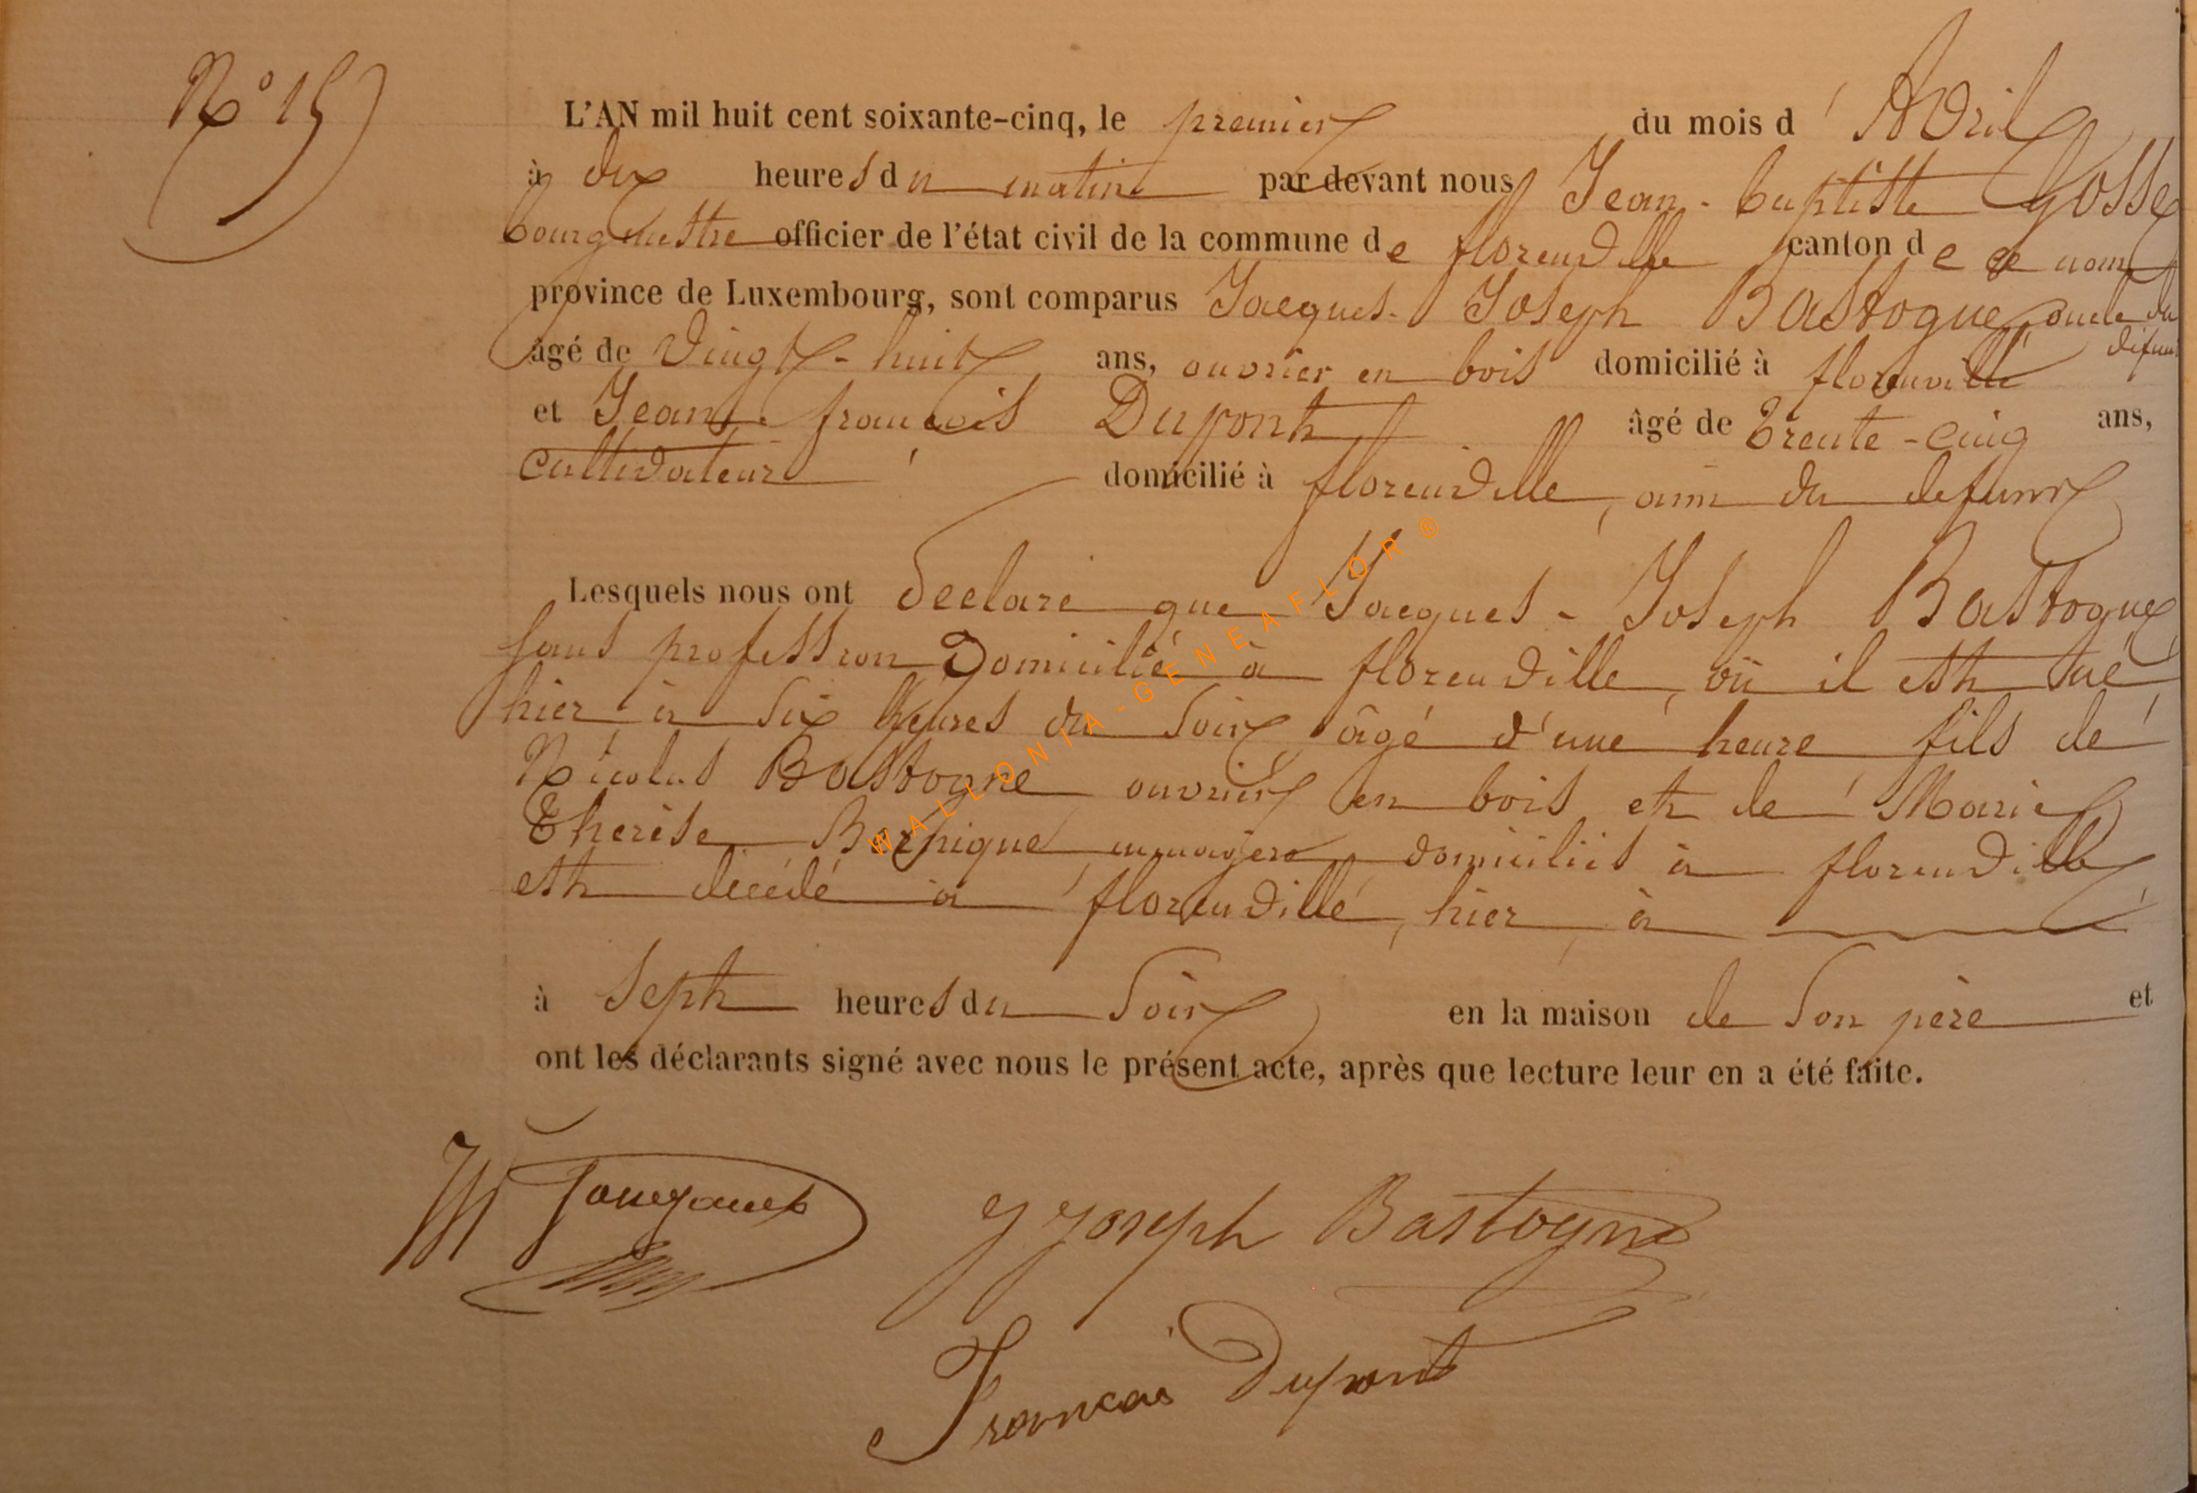 N° 15
L'AN mil huit cent soixante-cinq, le premier du mois d'Avril
à dix heures du matin par devant nous Jean-baptiste Gosse
bourgmestre officier de l'état civil de la commune de florenville canton de ce nom
province de Luxembourg, sont comparus Jacques-Joseph Bastogne, oncle du
défunt
âgé de vingt-huit ans, ouvrier en bois domicilié à florenville
et Jean françois Dupont âgé de trente-cinq ans,
cultivateur domicilié à florenville, ami du defunt
Lesquels nous ont déclaré que Jacques-Joseph Bastogne
sans profession Domicilié à florenville, où il est né
hier à six heures du soir, âgé d'une heure fils de
Nicolas Bastogne ouvrier en bois et de Marie
Therèse menagère domiciliés à florenville
est décédé à florenville, hier, à
à sept heures du soir en la maison de son père et
ont les déclarants signé avec nous le présent acte, après que lecture leur en a été faite.
J Joseph Bastogne
Francois Dupont
WALLONIA-GENEAFLOR®